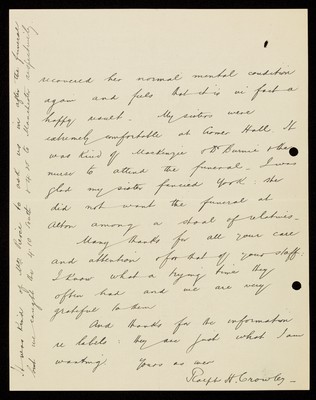 recovered her normal mental condition
again and feels that it is in fact a
happy result. My sisters were
extremely comfortable at Gower Hall. It
was kind of Mackenzie &
nurse to attend the funeral. I was
glad my sister fancied York: she
did not want the funeral at
Alton among a shoal of relatives.
Many thanks for all your care
and attention & for that of your staff:
I know what a trying time they
often had and we are very
grateful to them
And thanks for the information
re labels: they are just what I am
wanting Yours as ever
Ralph H. Crowley
It was kind of Mr to ask us in after the funeral
but we caught the 4.10 to Manchester respectively